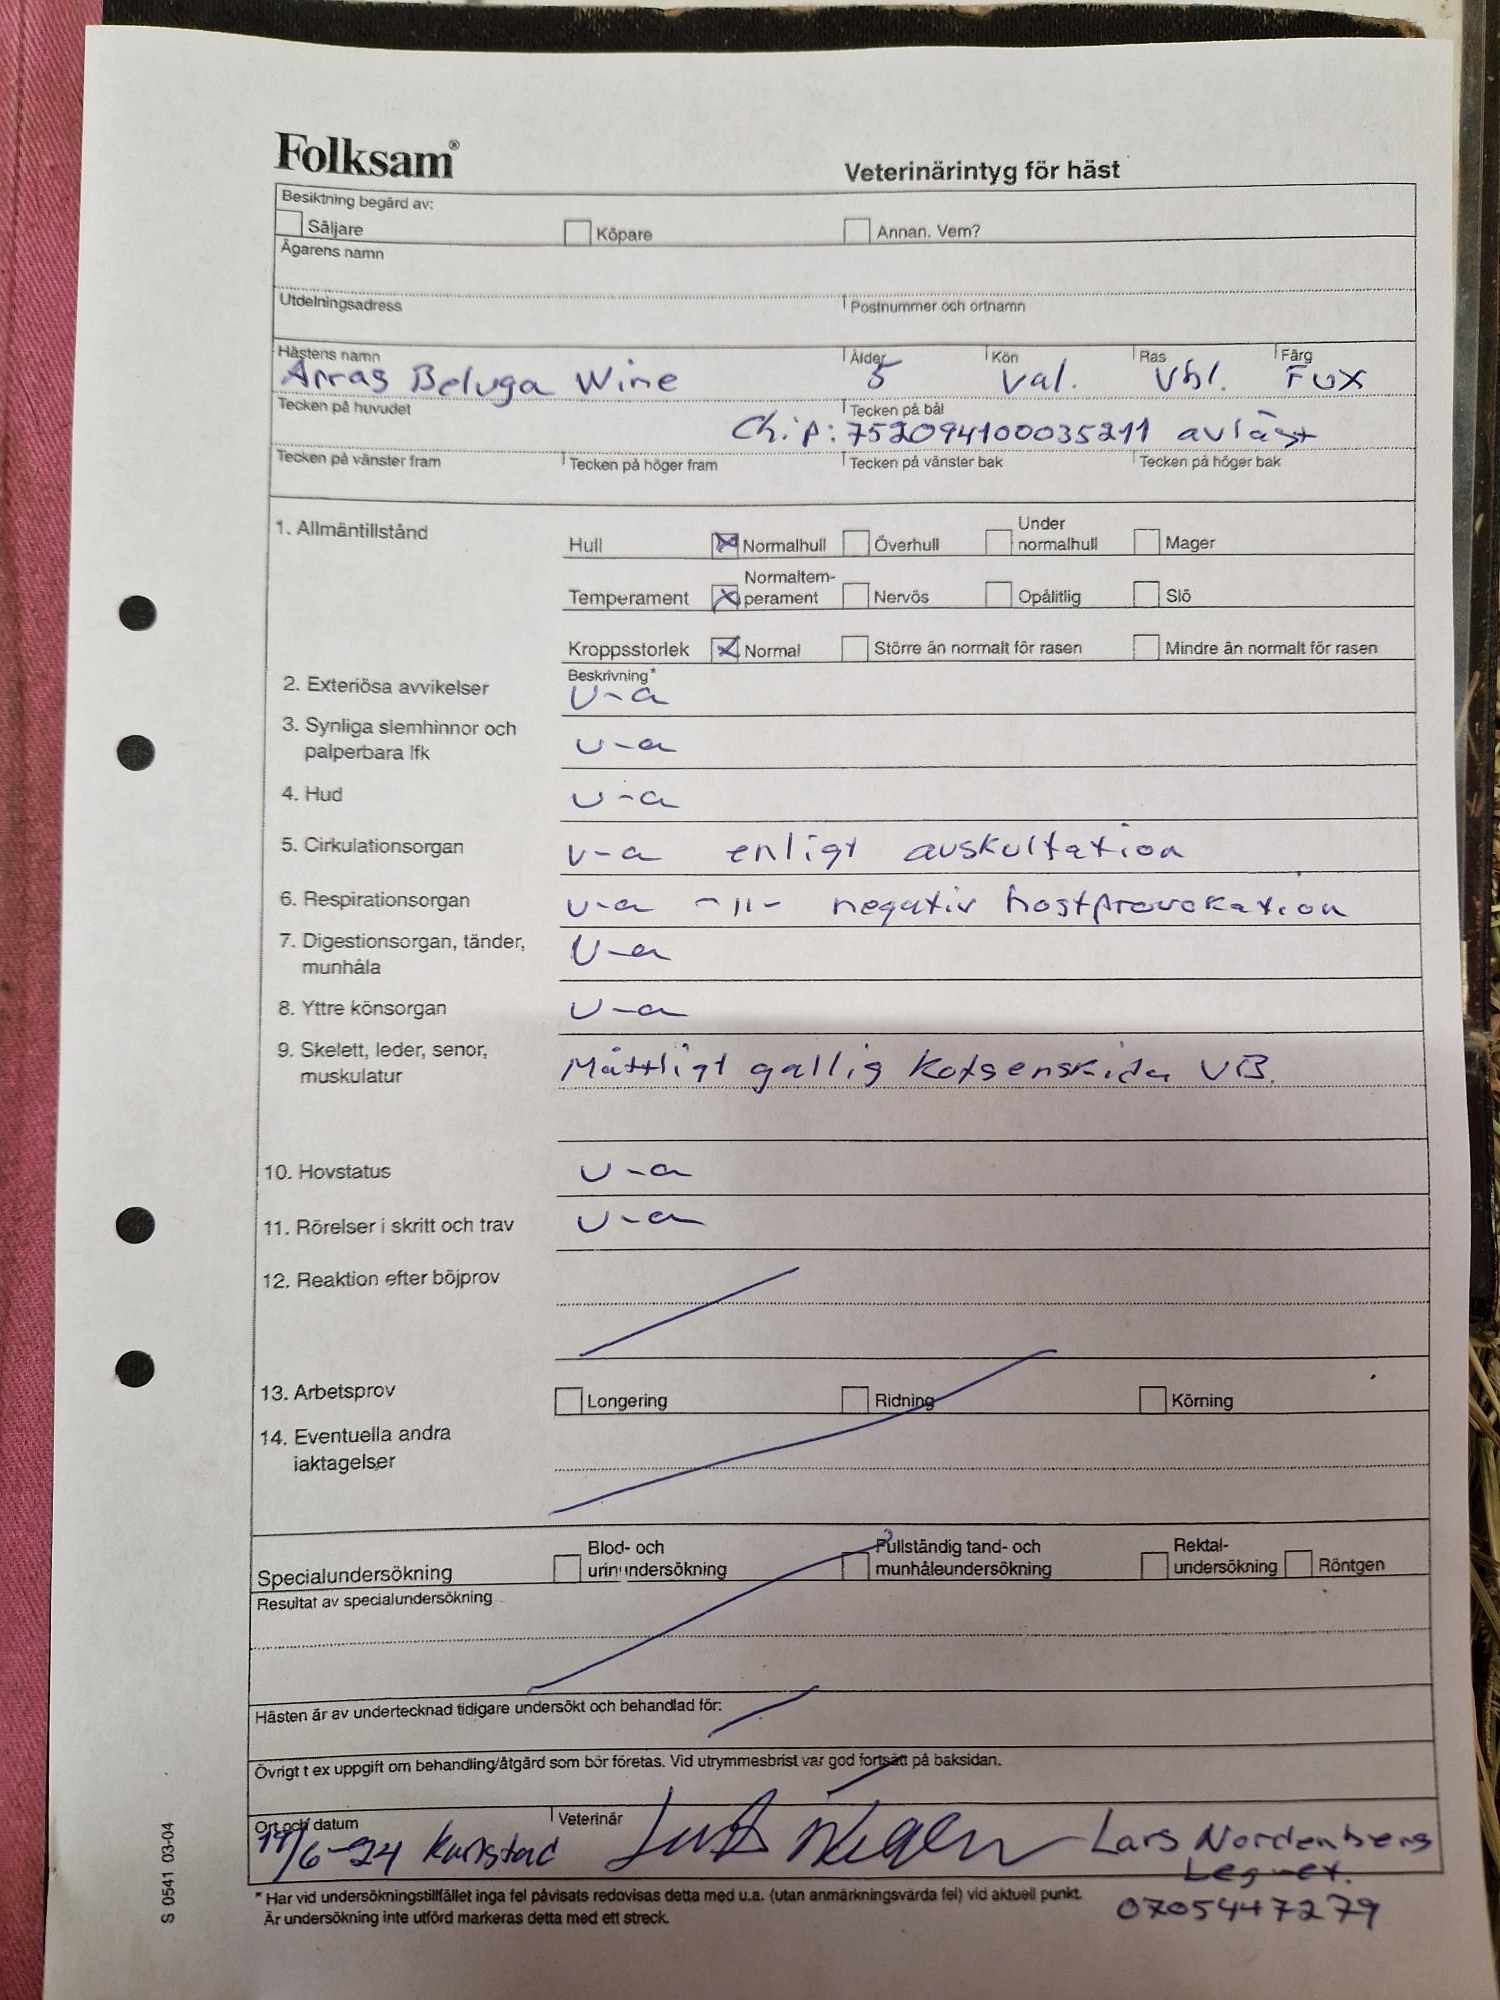 Folksam®
Veterinärintyg för häst
Besiktning begärd av:
Säljare Köpare Annan. Vem?
Ägarens namn
Utdelningsadress Postnummer och ortnamn
Hästens namn Ålder Kön Ras Färg
Arras Beluga Wine 5 val. Vbl. Fux
Tecken på huvudet Tecken på bål
Chip: 752094100035211 avläst
Tecken på vänster fram Tecken på höger fram Tecken på vänster bak Tecken på höger bak
1. Allmäntillstånd
Hull Normalhull Överhull Under normalhull Mager
Temperament Normaltem-perament Nervös Opålitlig Slö
Kroppsstorlek Normal Större än normalt för rasen Mindre än normalt för rasen
Beskrivning*
2. Exteriösa avvikelser u-a
3. Synliga slemhinnor och
palperbara lfk u-a
4. Hud u-a
5. Cirkulationsorgan u-a enligt auskultation
6. Respirationsorgan u-a -"- negativ hostprovokation
7. Digestionsorgan, tänder,
munhåla u-a
8. Yttre könsorgan u-a
9. Skelett, leder, senor,
muskulatur Måttligt gallig kotsenskida VB.
10. Hovstatus u-a
11. Rörelser i skritt och trav u-a
12. Reaktion efter böjprov
13. Arbetsprov Longering Ridning Körning
14. Eventuella andra
iaktagelser
Specialundersökning Blod- och urinundersökning Fullständig tand- och munhåleundersökning Rektal-undersökning Röntgen
Resultat av specialundersökning
Hästen är av undertecknad tidigare undersökt och behandlad för:
Övrigt t ex uppgift om behandling/åtgärd som bör företas. Vid utrymmesbrist var god fortsätt på baksidan.
Ort och datum Veterinär
/6-24 Karlstad Lars Nordenberg
Leg vet.
0705447279
* Har vid undersökningstillfället inga fel påvisats redovisas detta med u.a. (utan anmärkningsvärda fel) vid aktuell punkt.
Är undersökning inte utförd markeras detta med ett streck.
S 0541 03-04